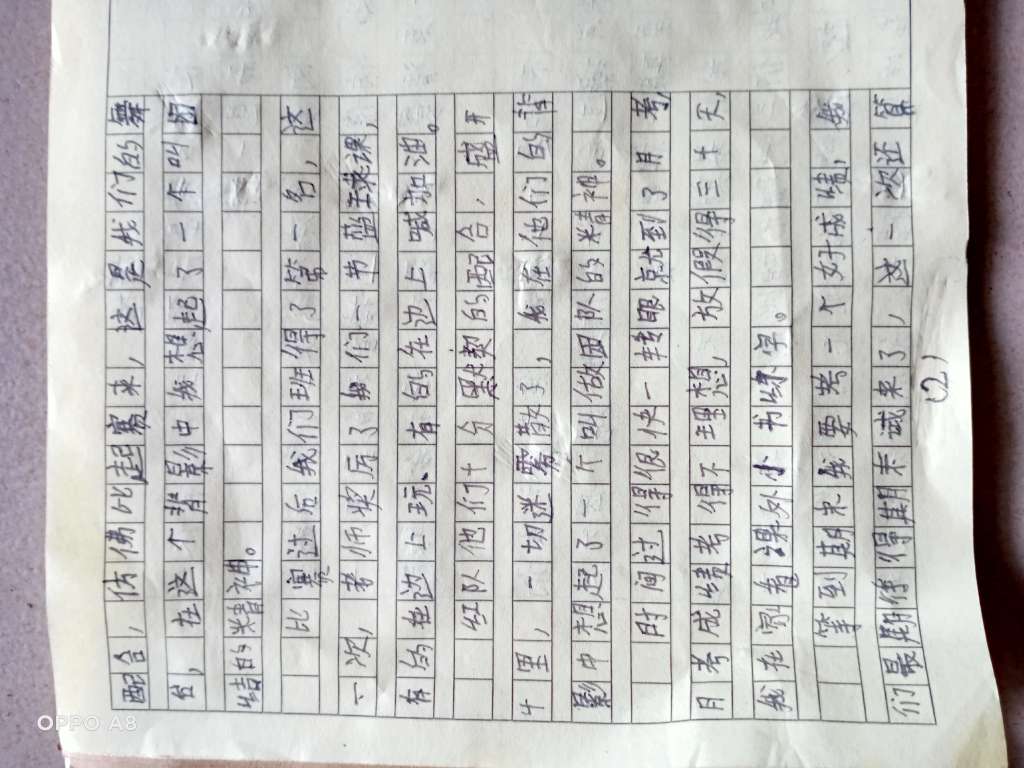 配合，仿佛比起赛来，这是我们的舞
台，在这个背影中我想起了一个叫团
结的精神。
比赛过后我们班得了第一名，这
一次，老师奖厉了我们一节蓝球课，
有的在边上玩、有的在边上喊加油。
红队他们十分默契的配合，盛开
十里，一切迷雾散了，我在他们的背
影中想起了一个叫做团队的精神。
时间过得很快一转眼点到了月考，
月考成绩考得不理想，放假得三十天，
我在家看课外小书练字。
等到期末我要考一个好成绩，我
们最期待得期末试来了，这一次还算
（2）
OPPO A8